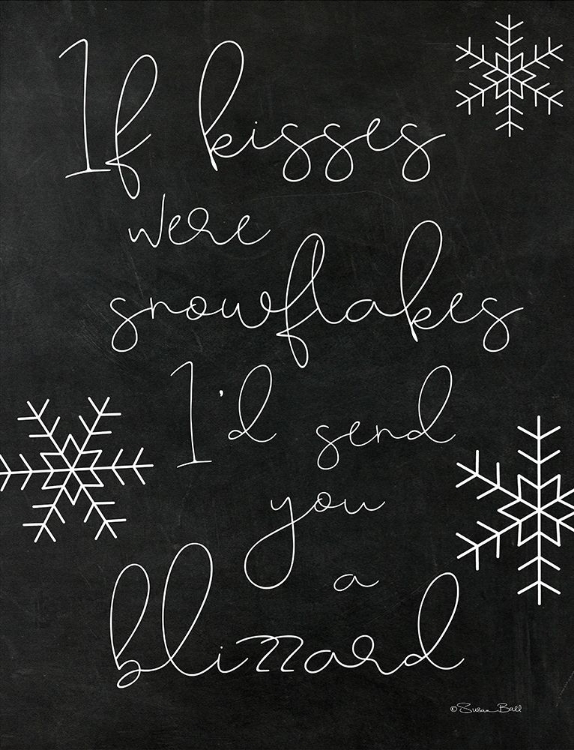 If kisses
were
snowflakes
I'd send
you
a
blizzard
©Susan Ball